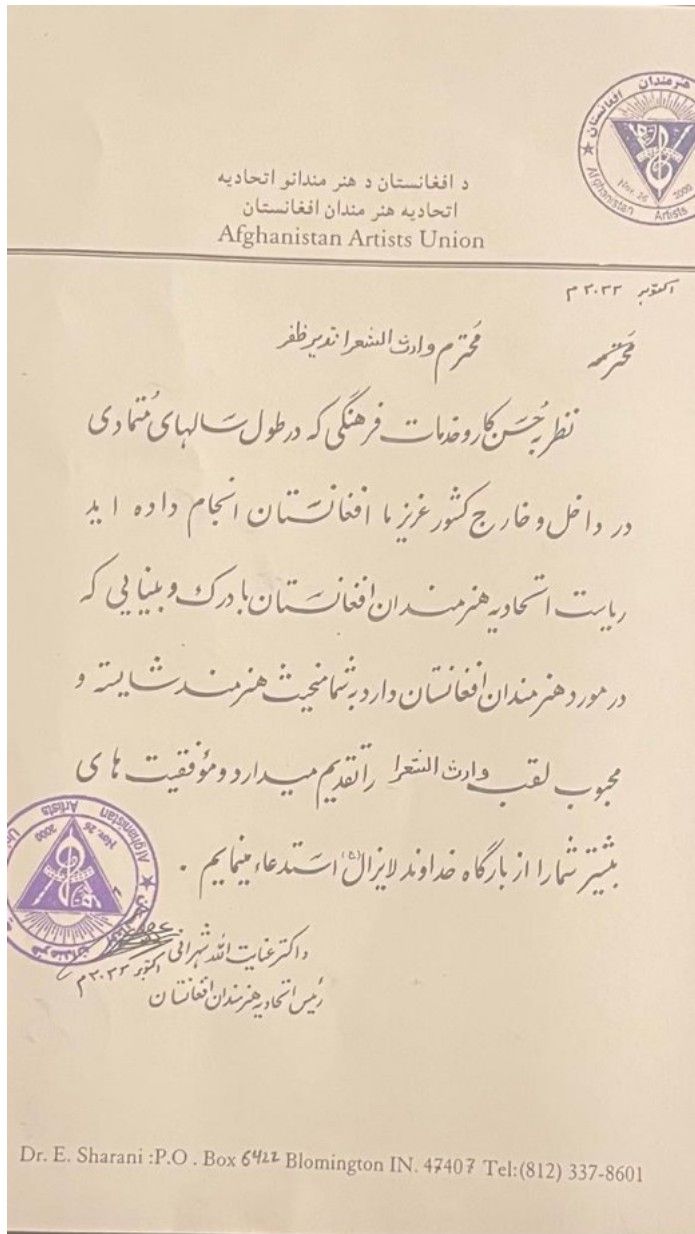 هنرمندان افغانستان
Afghanistan Artists
Nov. 26 2000
د افغانستان د هنر مندانو اتحادیه
اتحادیه هنر مندان افغانستان
Afghanistan Artists Union
اکتوبر ۲۰۲۲ م
محترمه محترم وارث الشعرا نذیر ظفر
نظر به حُسن کار و خدمات فرهنگی که در طول سالهای مُتمادی
در داخل و خارج کشور عزیز ما افغانستان انجام داده اید
ریاست اتحادیه هنرمندان افغانستان با درک و بینایی که
در مورد هنرمندان افغانستان دارد به شما منحیث هنرمند شایسته و
محبوب لقب وارث الشعرا را تقدیم میدارد و مؤفقیت های
بیشتر شما را از بارگاه خداوند لایزال (ج) استدعاء مینمایم .
Afghanistan Artists
Nov. 26 2000
هنرمندان
داکتر عنایت الله شهرانی
اکتوبر ۲۰۲۲ م
رئیس اتحادیه هنرمندان افغانستان
Dr. E. Sharani :P.O . Box 6422 Blomington IN. 47407 Tel:(812) 337-8601